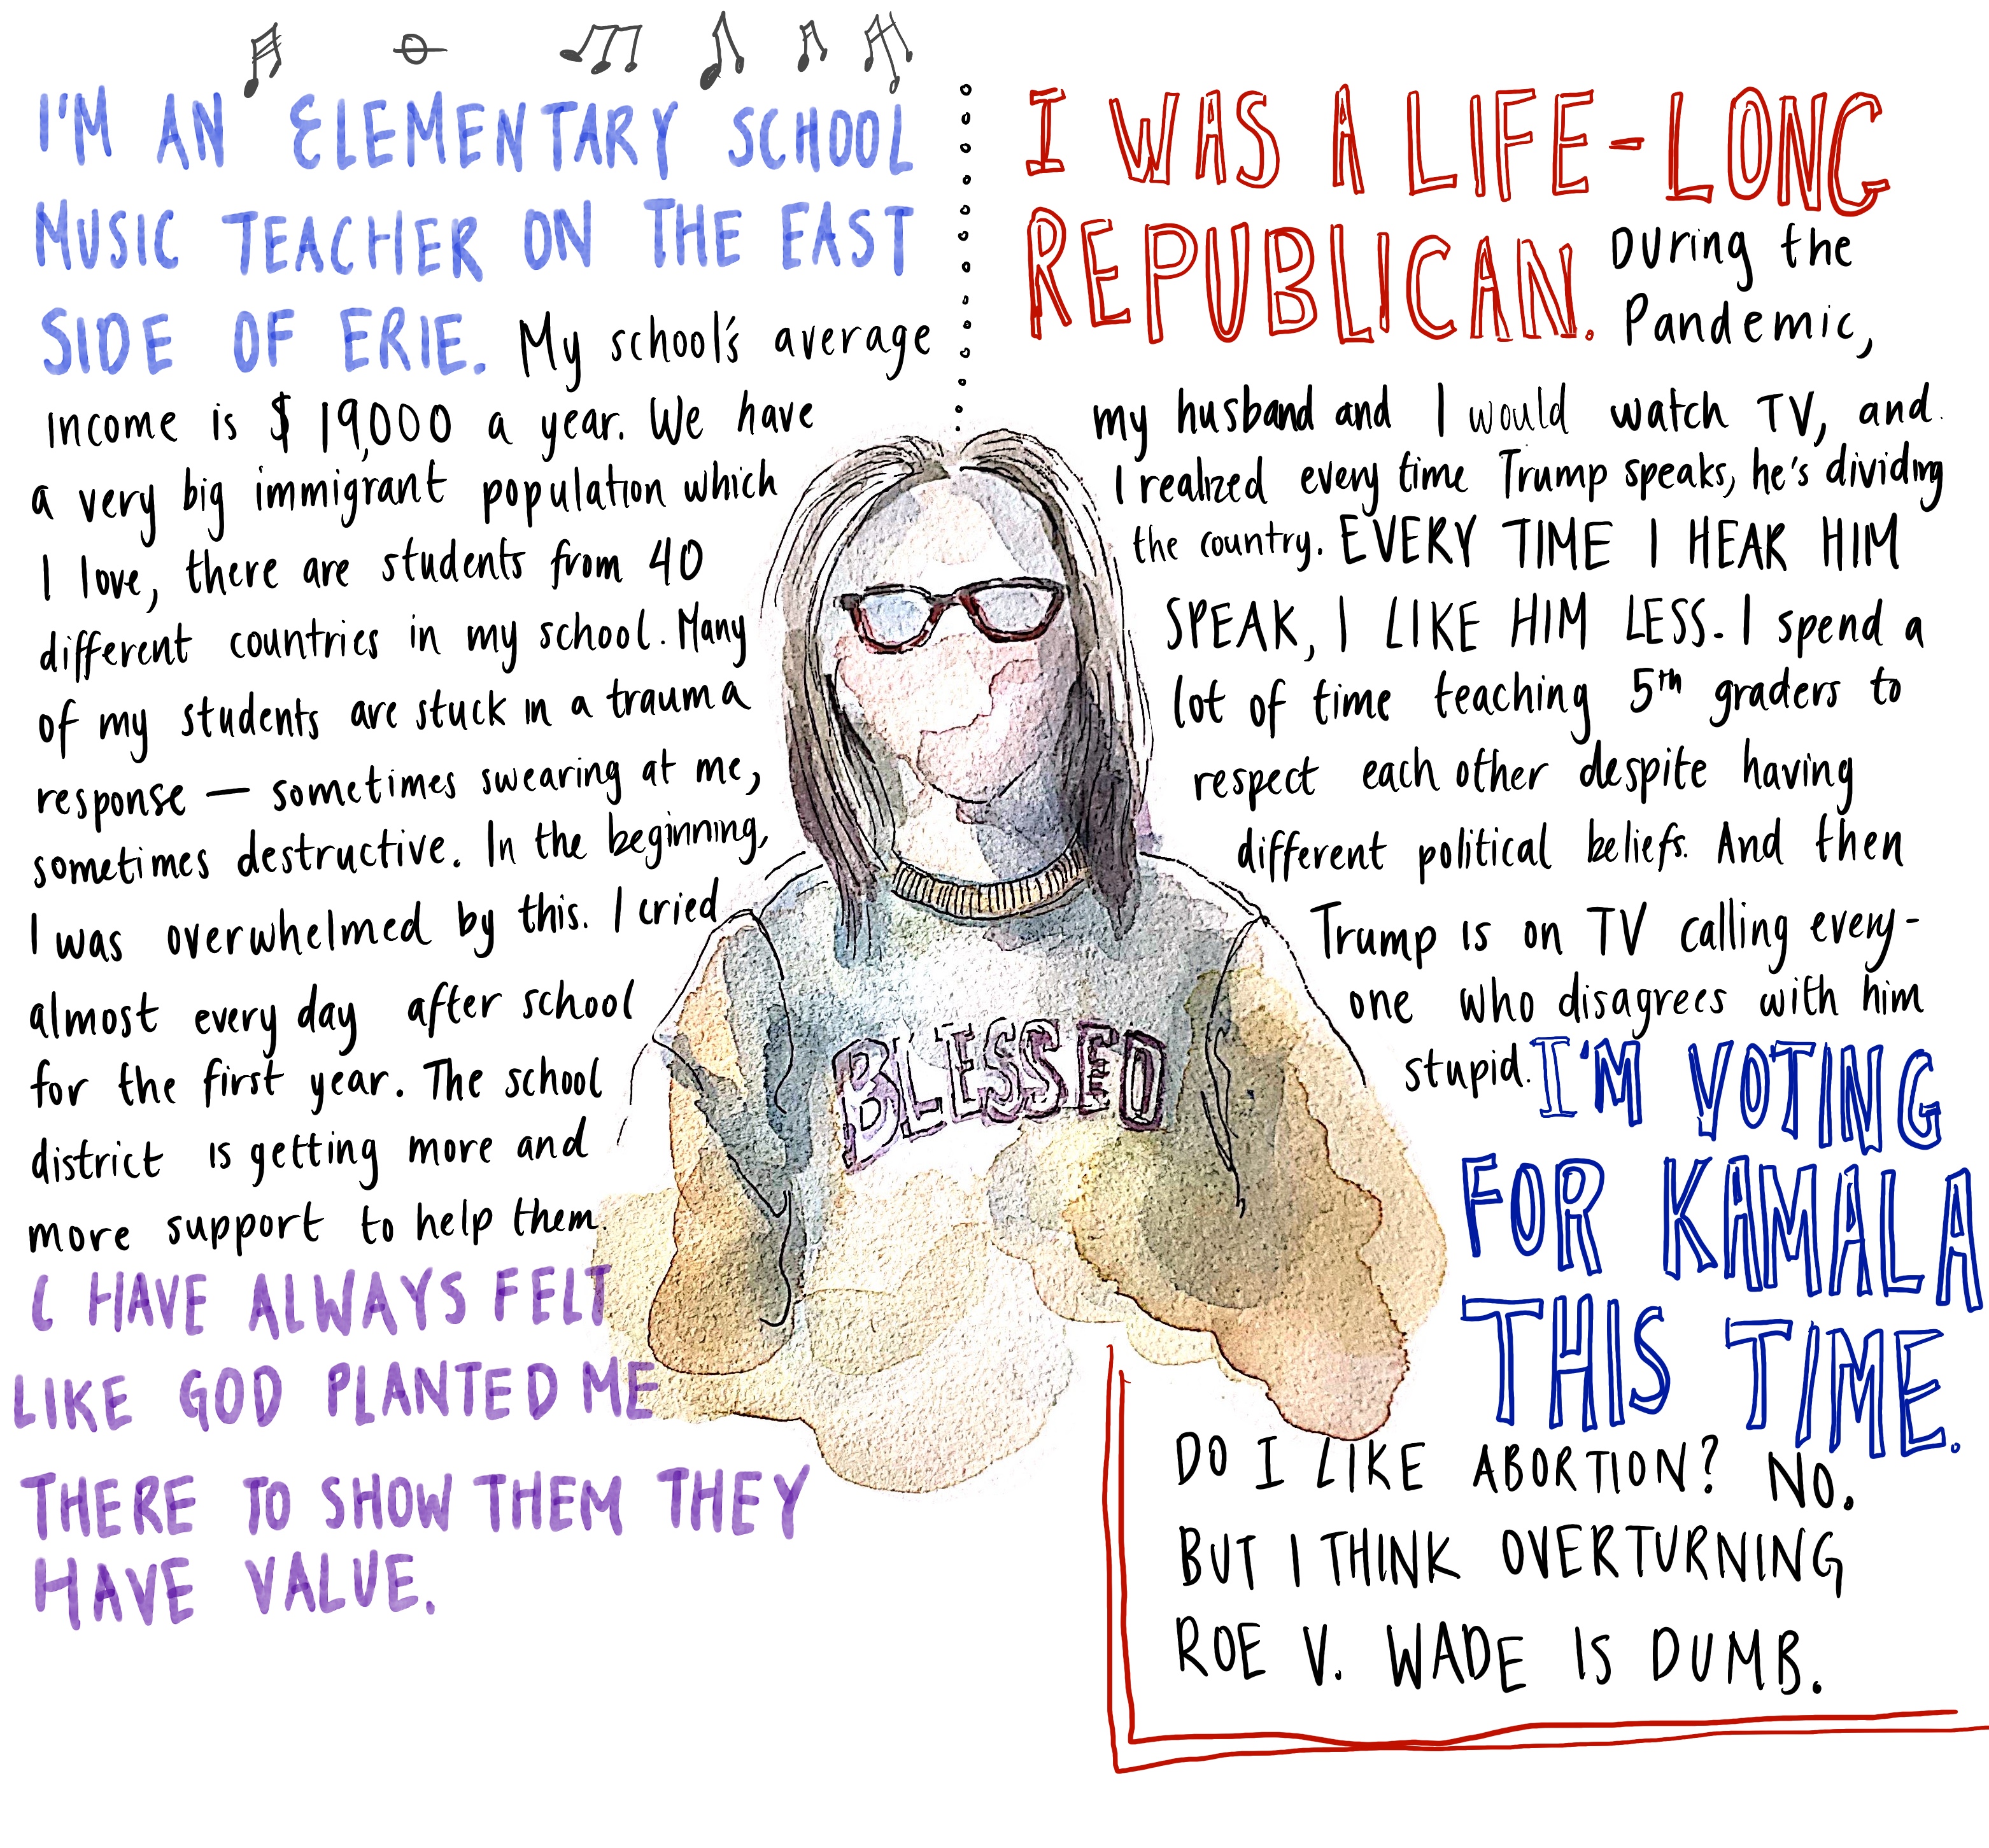 I'M AN ELEMENTARY SCHOOL
MUSIC TEACHER ON THE EAST
SIDE OF ERIE. My school's average
income is $19,000 a year. We have
a very big immigrant population which
I love, there are students from 40
different countries in my school. Many
of my students are stuck in a trauma
response — sometimes swearing at me,
sometimes destructive. In the beginning,
I was overwhelmed by this. I cried
almost every day after school
for the first year. The school
district is getting more and
more support to help them.
I HAVE ALWAYS FELT
LIKE GOD PLANTED ME
THERE TO SHOW THEM THEY
HAVE VALUE.
BLESSED
I WAS A LIFE-LONG
REPUBLICAN. During the
Pandemic,
my husband and I would watch TV, and
I realized every time Trump speaks, he's dividing
the country. EVERY TIME I HEAR HIM
SPEAK, I LIKE HIM LESS. I spend a
lot of time teaching 5th graders to
respect each other despite having
different political beliefs. And then
Trump is on TV calling every-
one who disagrees with him
stupid. I'M VOTING
FOR KAMALA
THIS TIME.
DO I LIKE ABORTION? NO.
BUT I THINK OVERTURNING
ROE V. WADE IS DUMB.